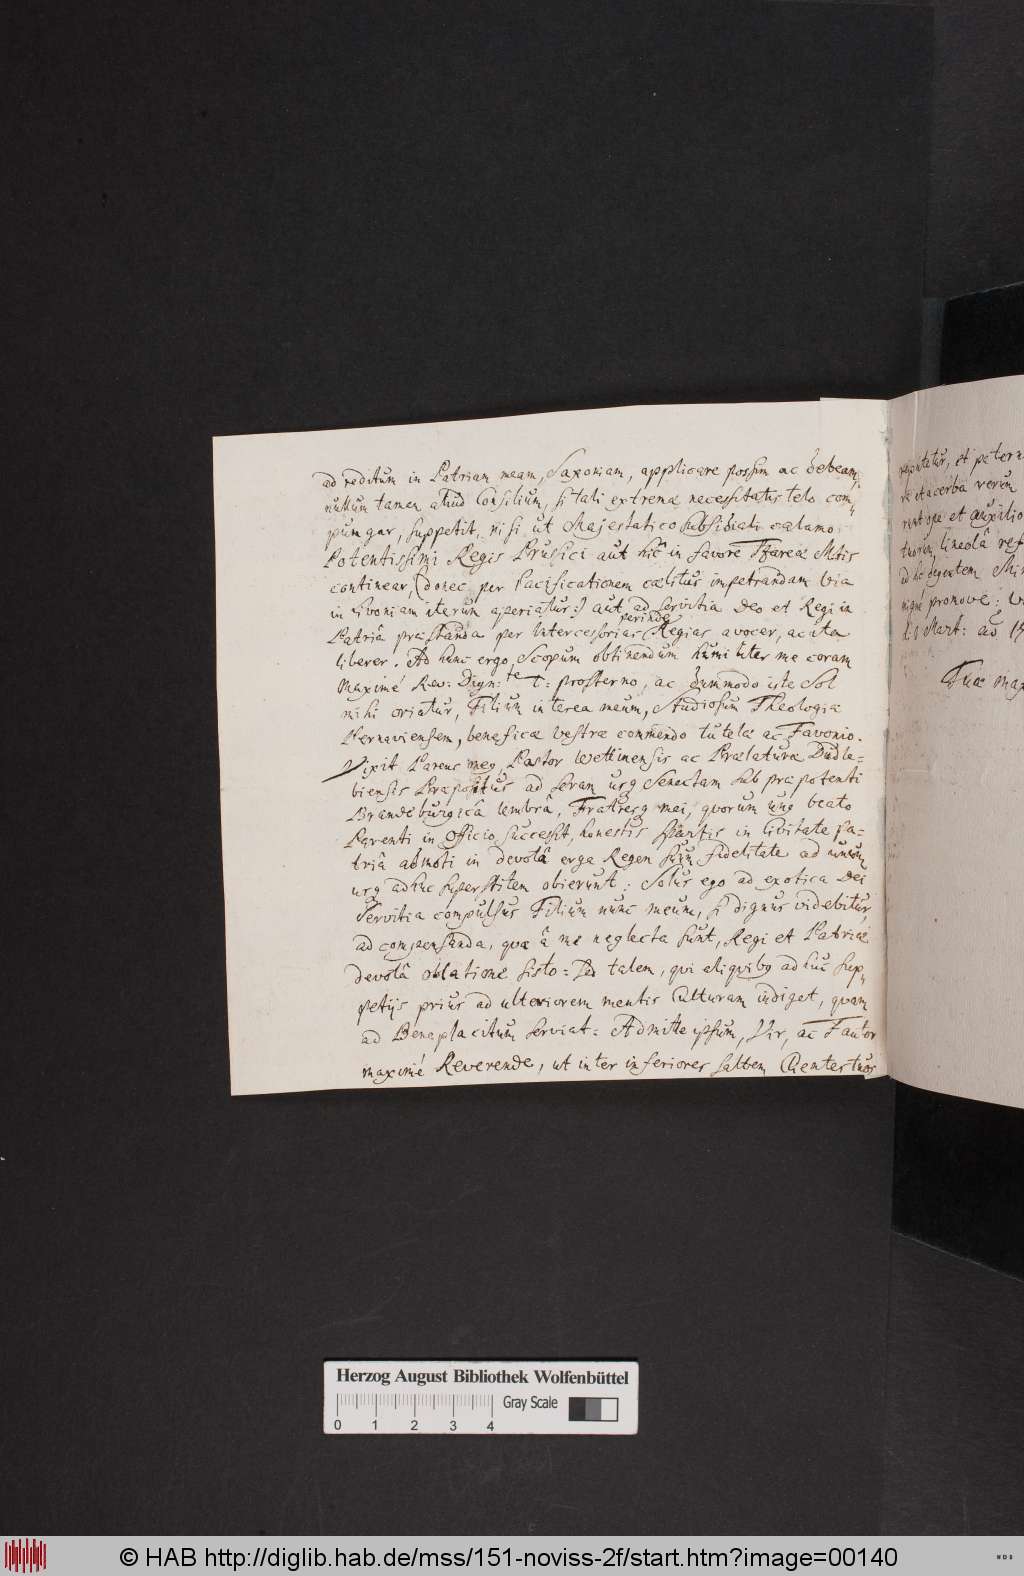 ad reditum in Patriam meam, Saxoniam, applicare possim ac debeam,
nullum tamen aliud Consilium, si tali extremæ necessitatis telo com„
pungar, suppetit, nisi ut Majestatico Subsidiali calamo
Potentissimi Regis Prussici aut hic in favore Tzareæ Mtis
continear, (donec per Pacificationem cælitus impetrandam via
in Livoniam iterum aperiatur:) aut ad servitia Deo et Regi in
perinde
Patriâ præstanda per Intercessorias Regias avocer, ac ita
liberer. Ad hunc ergo Scopum obtinendum humiliter me coram
Maximé Rev: Dign:te T: prosterno, ac dummodo iste Sol
mihi oriatur, Filium interea meum, Studiosum Theologiæ
Pernaviensem, beneficæ vestræ commendo tutelæ ac Favonio.
Vixit Parens meq Pastor Wettinensis ac Prælaturæ Dudle-
biensis Præpositus ad seram usq Senectam sub præpotenti
Brandeburgicâ Umbrâ, Fratresq mei, quorum unq beato
Parenti in Officio successit, honestis Spartis in Civitate pa-
triâ admoti in devotâ erga Regem suum fidelitate ad unum
usq adhuc superstitem obierunt: Solus ego ad exotica Dei
Servitia compulsus Filium nunc meum, si dignus videbitur
ad compensanda, quæ â me neglecta sunt, Regi et Patriæ
devotâ oblatione sisto: sed talem, qui aliquibq adhuc sup„
petijs prius ad ulteriorem mentis Culturam indiget, quam
ad Beneplacitum serviat: Admitte ipsum, Vir, ac Fautor
maximé Reverende, ut inter inferiores saltem Clientes tuos
reputatur, et patern
acerba rerum
ope et auxilio
tuorum lineolâ ref
degentem
promove:
Mart: aõ 17
Tuæ max
Herzog August Bibliothek Wolfenbüttel
Gray Scale
0 1 2 3 4
© HAB http://diglib.hab.de/mss/151-noviss-2f/start.htm?image=00140